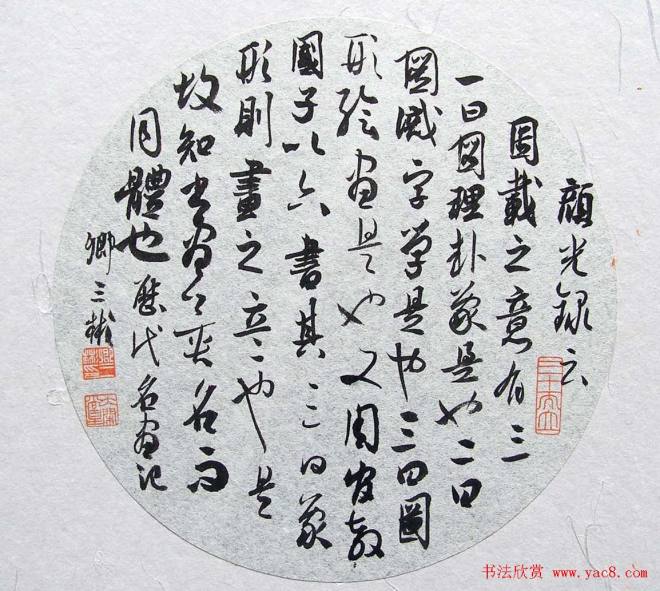 顏光錄云
圖載之意有三
一曰圖理卦象是也二曰
圖識字學是也三曰圖
形繪畫是也又周官教
國子以六書其三曰象
形則畫之意也是
故知書畫異名而
同體也歷代名畫記
卿三彬
书法欣赏 www.yac8.com